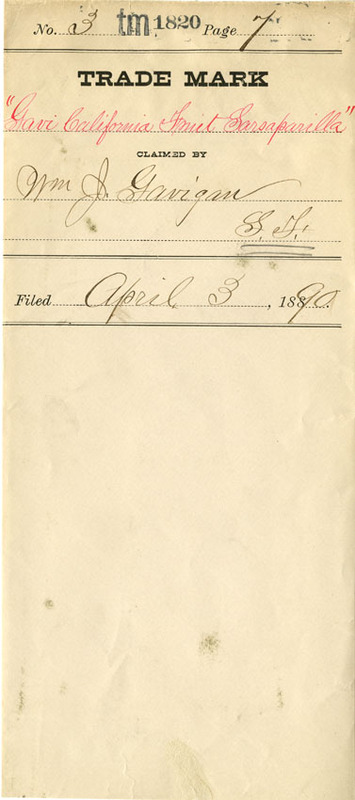 No. 3 tm 1820 Page 7
TRADE MARK
"Gavi California Fruit Sarsaparilla"
CLAIMED BY
Wm J. Gavigan
S. F.
Filed April 3, 1890.